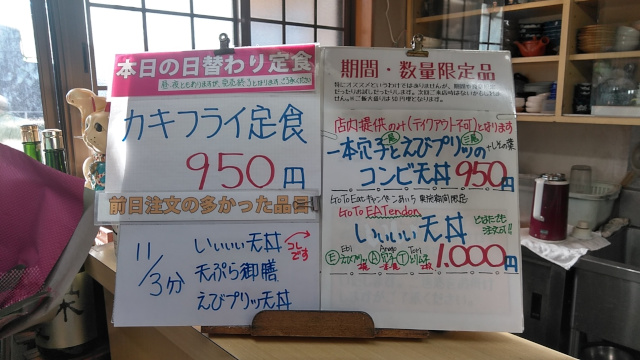 本日の日替わり定食
カキフライ定食
950円
前日注文の多かった品
11/3分
いいいい天丼
コレです
天ぷら御膳
えびプリッ天丼
期間・数量限定品
店内提供のみ(テイクアウト不可)となります
一本穴子とえびプリッの
一尾
三尾
+しその葉
コンビ天丼 950円
GoToEatキャンペーンあいち 実施期間限定
GoTo EATendon
いいいい天丼
どなたでも
注文可!!
Ebi
Anago
Tori
1.000円
木